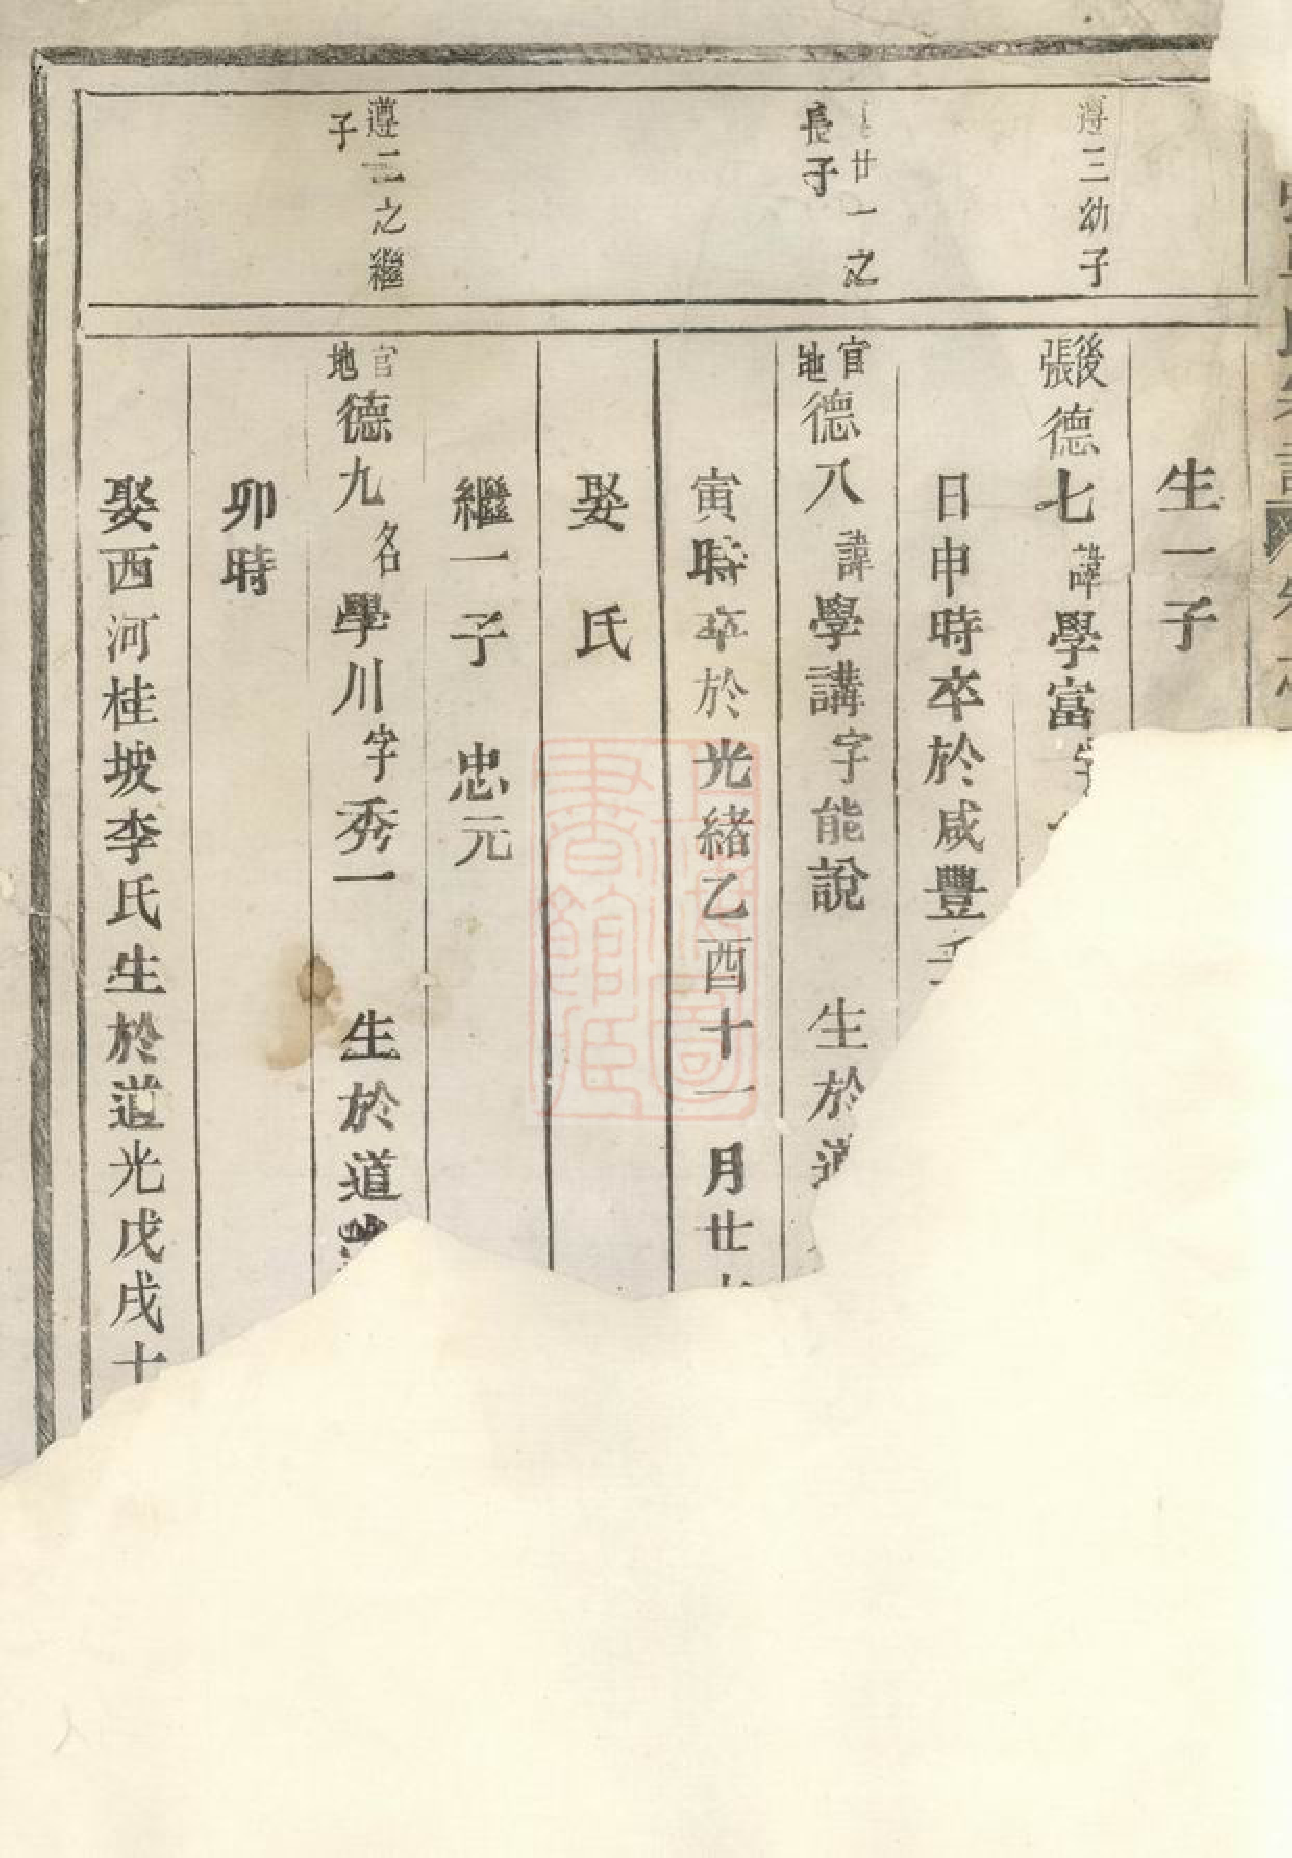 生一子
遵三幼子
後張德七諱學富字
日申時卒於咸豐
廿一之
長子
官地德八諱學講字能說 生於道
寅時卒於光緒乙酉十一月廿
娶 氏
繼一子 忠元
遵二之繼
子
官地德九名學川字秀一 生於道光
卯時
娶西河桂坡李氏生於道光戊戌十